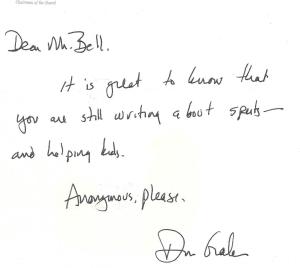 Chairman of the Board
Dear Mr. Bell.
It is great to know that
you are still writing about sports—
and helping kids.
Anonymous, please.